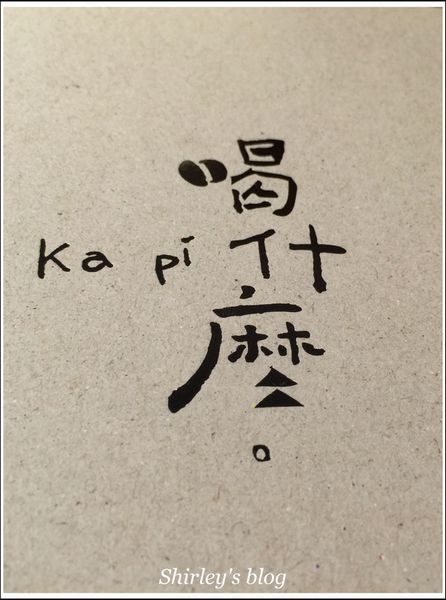 喝
Ka pi 什
麼
。
Shirley's blog